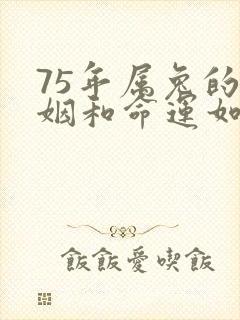 75年属兔的
姻和命运如
飯飯愛喫飯